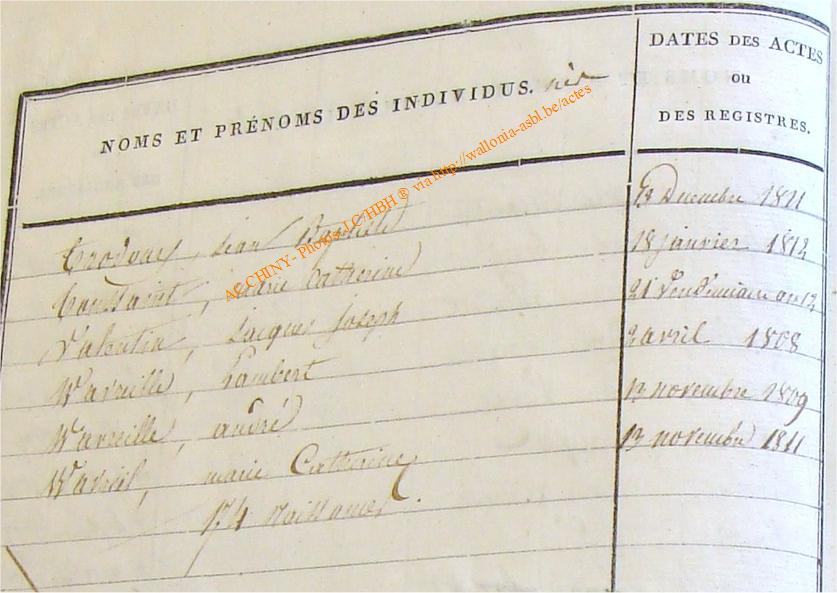 NOMS ET PRÉNOMS DES INDIVIDUS.
DATES DES ACTES
ou
DES REGISTRES.
AE CHINY- Photos LC HBH ® via http://wallonia-asbl.be/actes
Jean Baptiste 13 Decembre 1811
Toussaint, marie Catherine 18 janvier 1812
Valentin, Jacques joseph 21 Vendemiaire an 12
Warzeille, Lambert 2 avril 1808
Warzeille, andré 13 novembre 1809
marie Catherine 13 novembre 1811
174 Naissances.